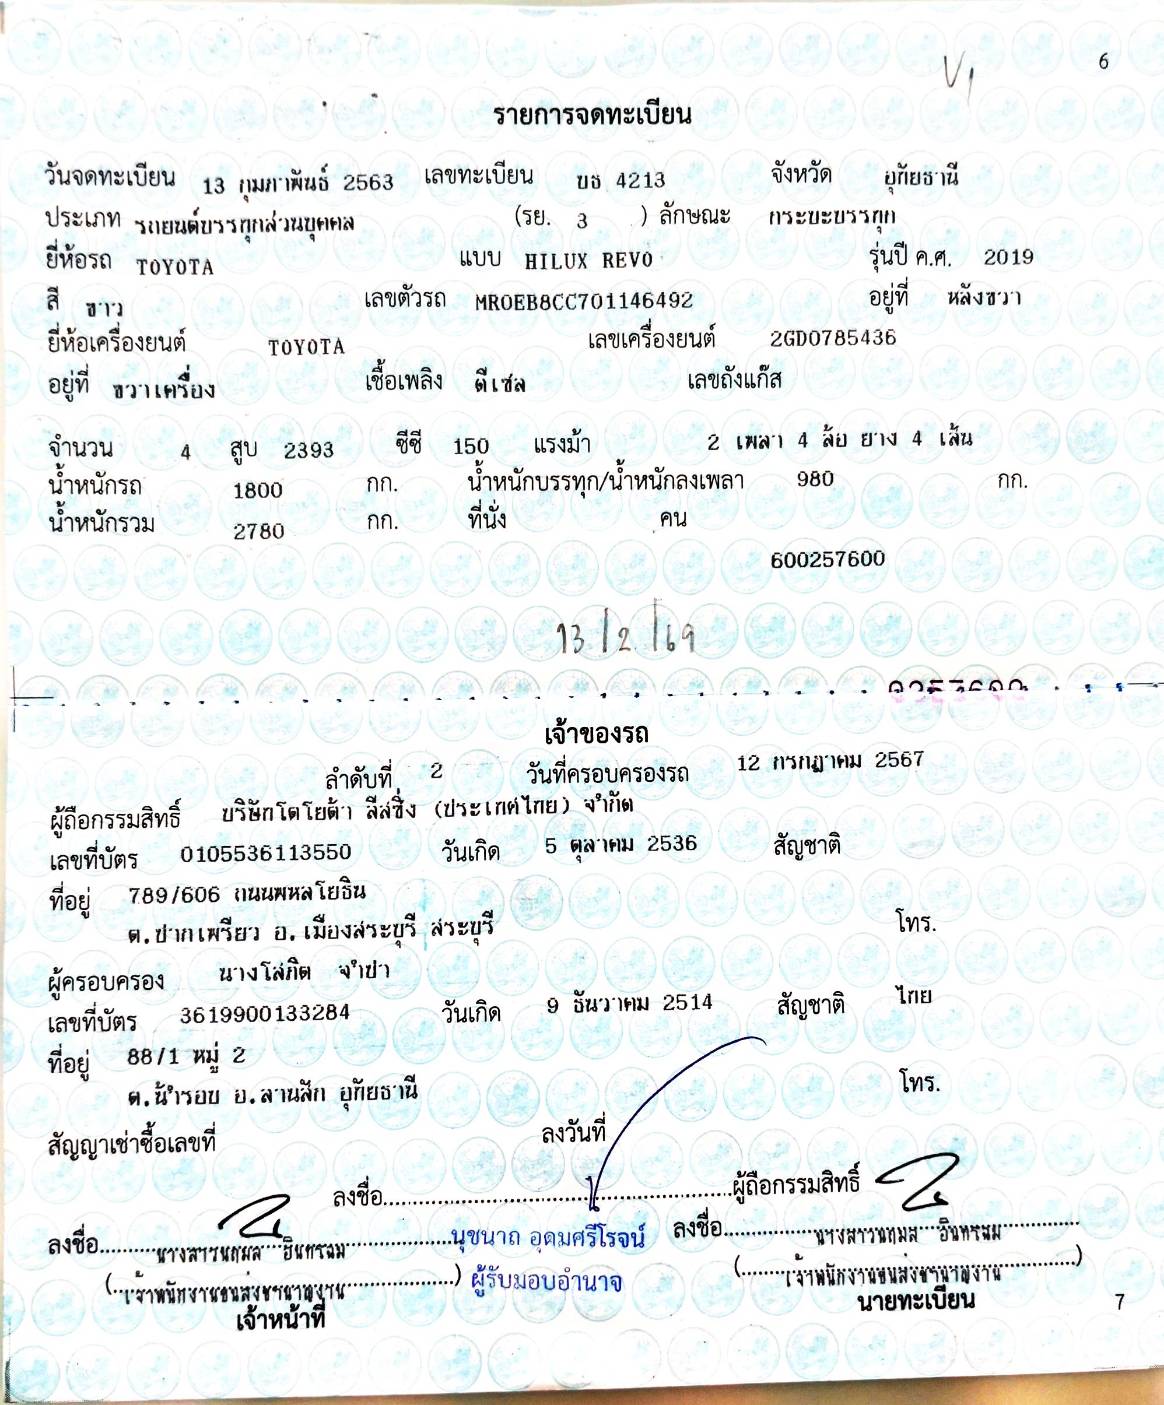 6
V1
รายการจดทะเบียน
วันจดทะเบียน 13 กุมภาพันธ์ 2563 เลขทะเบียน บธ 4213 จังหวัด อุทัยธานี
ประเภท รถยนต์บรรทุกส่วนบุคคล (รย. 3 ) ลักษณะ กระบะบรรทุก
ยี่ห้อรถ TOYOTA แบบ HILUX REVO รุ่นปี ค.ศ. 2019
สี ขาว เลขตัวรถ MR0EB8CC701146492 อยู่ที่ หลังขวา
ยี่ห้อเครื่องยนต์ TOYOTA เลขเครื่องยนต์ 2GD0785436
อยู่ที่ ขวาเครื่อง เชื้อเพลิง ดีเซล เลขถังแก๊ส
จำนวน 4 สูบ 2393 ซีซี 150 แรงม้า 2 เพลา 4 ล้อ ยาง 4 เส้น
น้ำหนักรถ 1800 กก. น้ำหนักบรรทุก/น้ำหนักลงเพลา 980 กก.
น้ำหนักรวม 2780 กก. ที่นั่ง คน
600257600
13/2/69
0257600
เจ้าของรถ
ลำดับที่ 2 วันที่ครอบครองรถ 12 กรกฎาคม 2567
ผู้ถือกรรมสิทธิ์ บริษัทโตโยต้า ลีสซิ่ง (ประเทศไทย) จำกัด
เลขที่บัตร 0105536113550 วันเกิด 5 ตุลาคม 2536 สัญชาติ
ที่อยู่ 789/606 ถนนพหลโยธิน
ต.ปากเพรียว อ.เมืองสระบุรี สระบุรี โทร.
ผู้ครอบครอง นางโสภิต จำปา
เลขที่บัตร 3619900133284 วันเกิด 9 ธันวาคม 2514 สัญชาติ ไทย
ที่อยู่ 88/1 หมู่ 2
ต.น้ำรอบ อ.ลานสัก อุทัยธานี โทร.
สัญญาเช่าซื้อเลขที่ ลงวันที่
ลงชื่อ ผู้ถือกรรมสิทธิ์
ลงชื่อ นางสาวนฤมล อินทรฉม นุชนาถ อุดมศรีโรจน์ ลงชื่อ นางสาวนฤมล อินทรฉม
(เจ้าพนักงานขนส่งชำนาญงาน) ผู้รับมอบอำนาจ (เจ้าพนักงานขนส่งชำนาญงาน)
เจ้าหน้าที่ นายทะเบียน
7